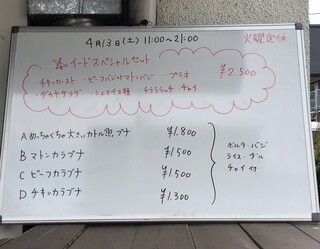 4月13日(土) 11:00~21:00
火曜定休
イードスペシャルセット
チキンロースト ・ビーフバジマトンバジ ・プラオ
¥2,500
・ダルヤサラダ ・シェマイ2種 チャイ
A めっちゃくちゃ大きいカトル魚ブナ ¥1,800
B マトンカラブナ ¥1,500
C ビーフカラブナ ¥1,500
D チキンカラブナ ¥1,300
ボルタ・バジ
ライス・ダル
チャイ付